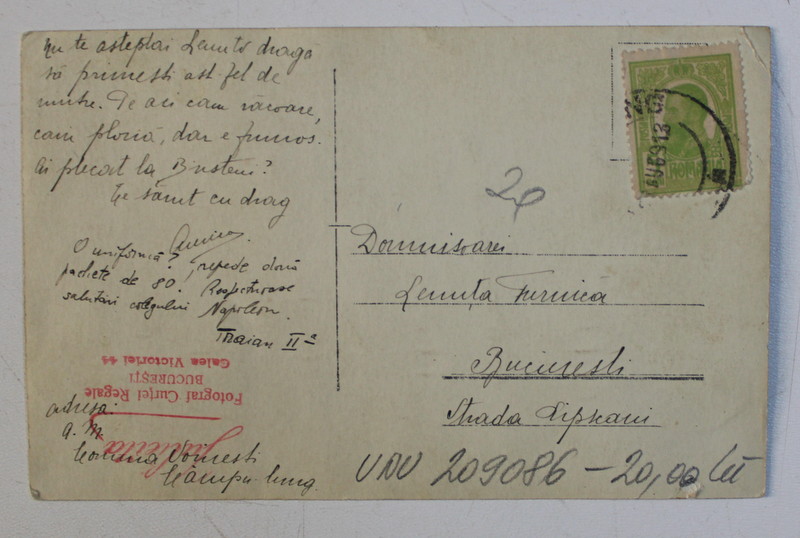 nu te asteptai Lenuto draga
să primesti ast-fel de
De aci cam răcoare,
cam plouă, dar e frumos.
Ai plecat la Busteni?
Te sărut cu drag
O uniformă?
pachete de 80, repede două
Respectuoase
salutări colegului Napoleon.
Traian II-a
Fotograf Curței Regale
BUCUREȘTI
Calea Victoriei 44
Julietta
adresa:
a. M
Comuna Voinesti
Câmpu-lung.
20
Domnisoarei
Lenuța Furnica
Bucuresti
Strada Lipscani
UDU 209086 - 20,00 lei